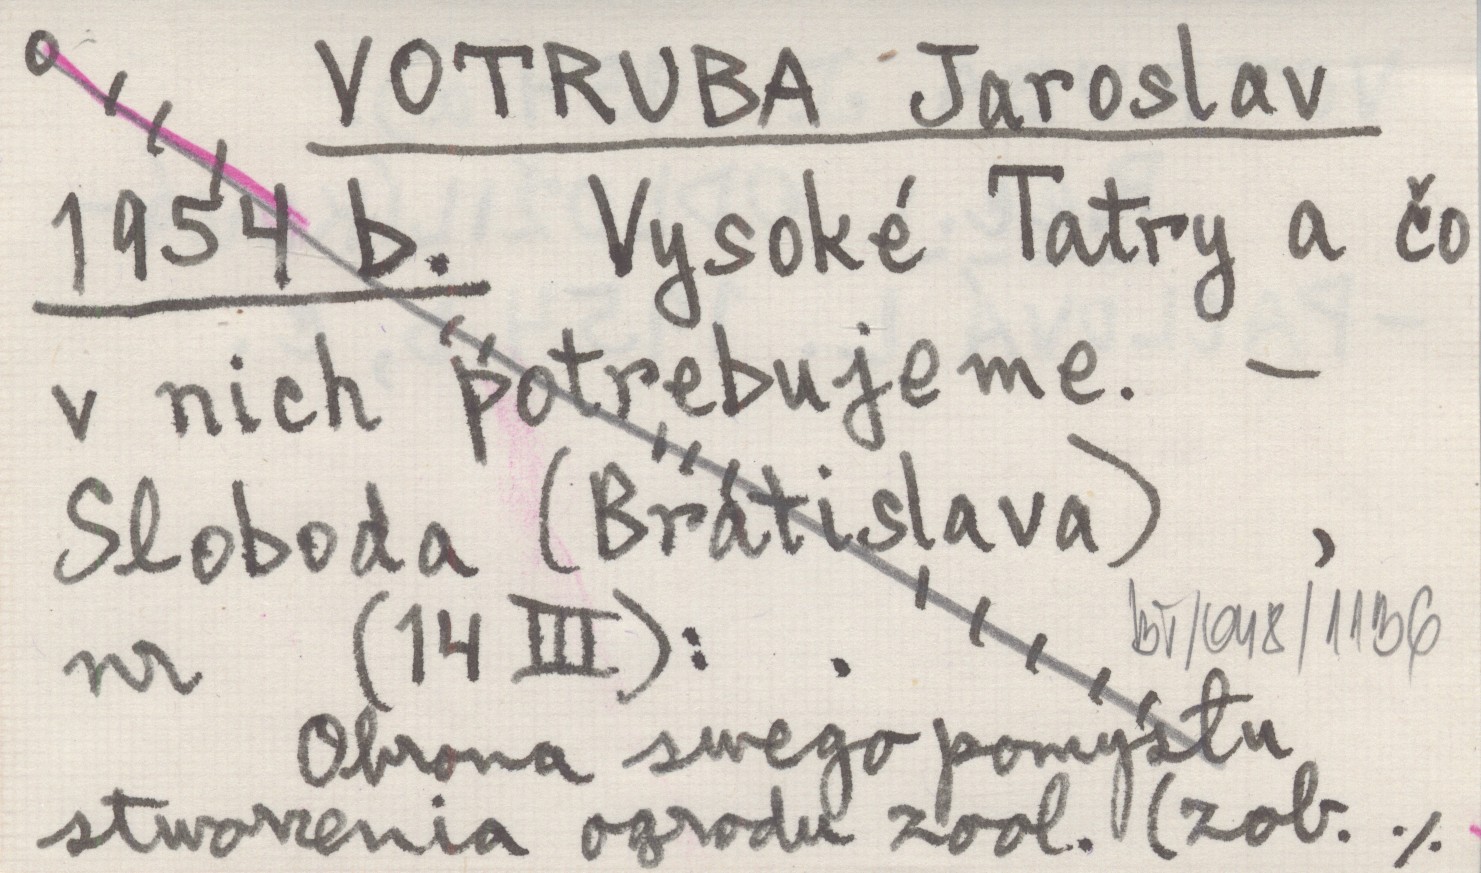 VOTRUBA Jaroslav
1954 b. Vysoké Tatry a čo
v nich potrebujeme. —
Sloboda (Bratislava) ,
nr (14 III): .
Obrona swego pomysłu
stworzenia ogrodu zool. (zob. ./.